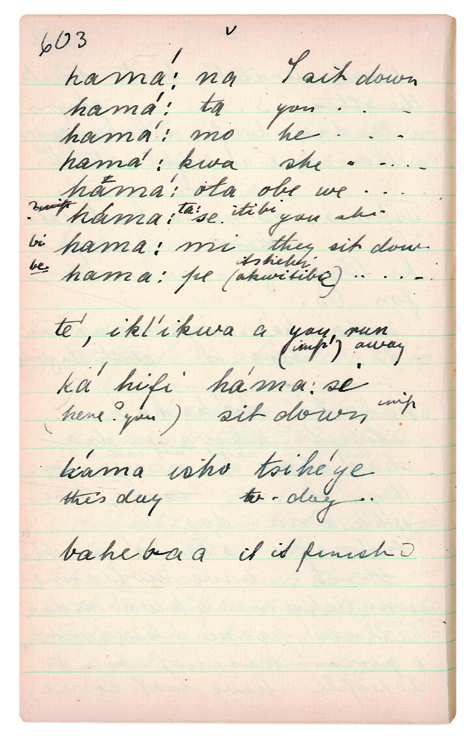 603
hamá: na I sit down
hamá: ta you
hamá: mo he
hamá: kwa she
hamá: ota obe we
háma: ta: se itibi you
bi hama: mi they sit down
be hama: pe (akwitibe)
té, iklíkwa a you run
(imp) away
ká hifi háma: se
(here? you) sit down imp
káma isho tsihéye
this day to-day
bahebaa it is finish